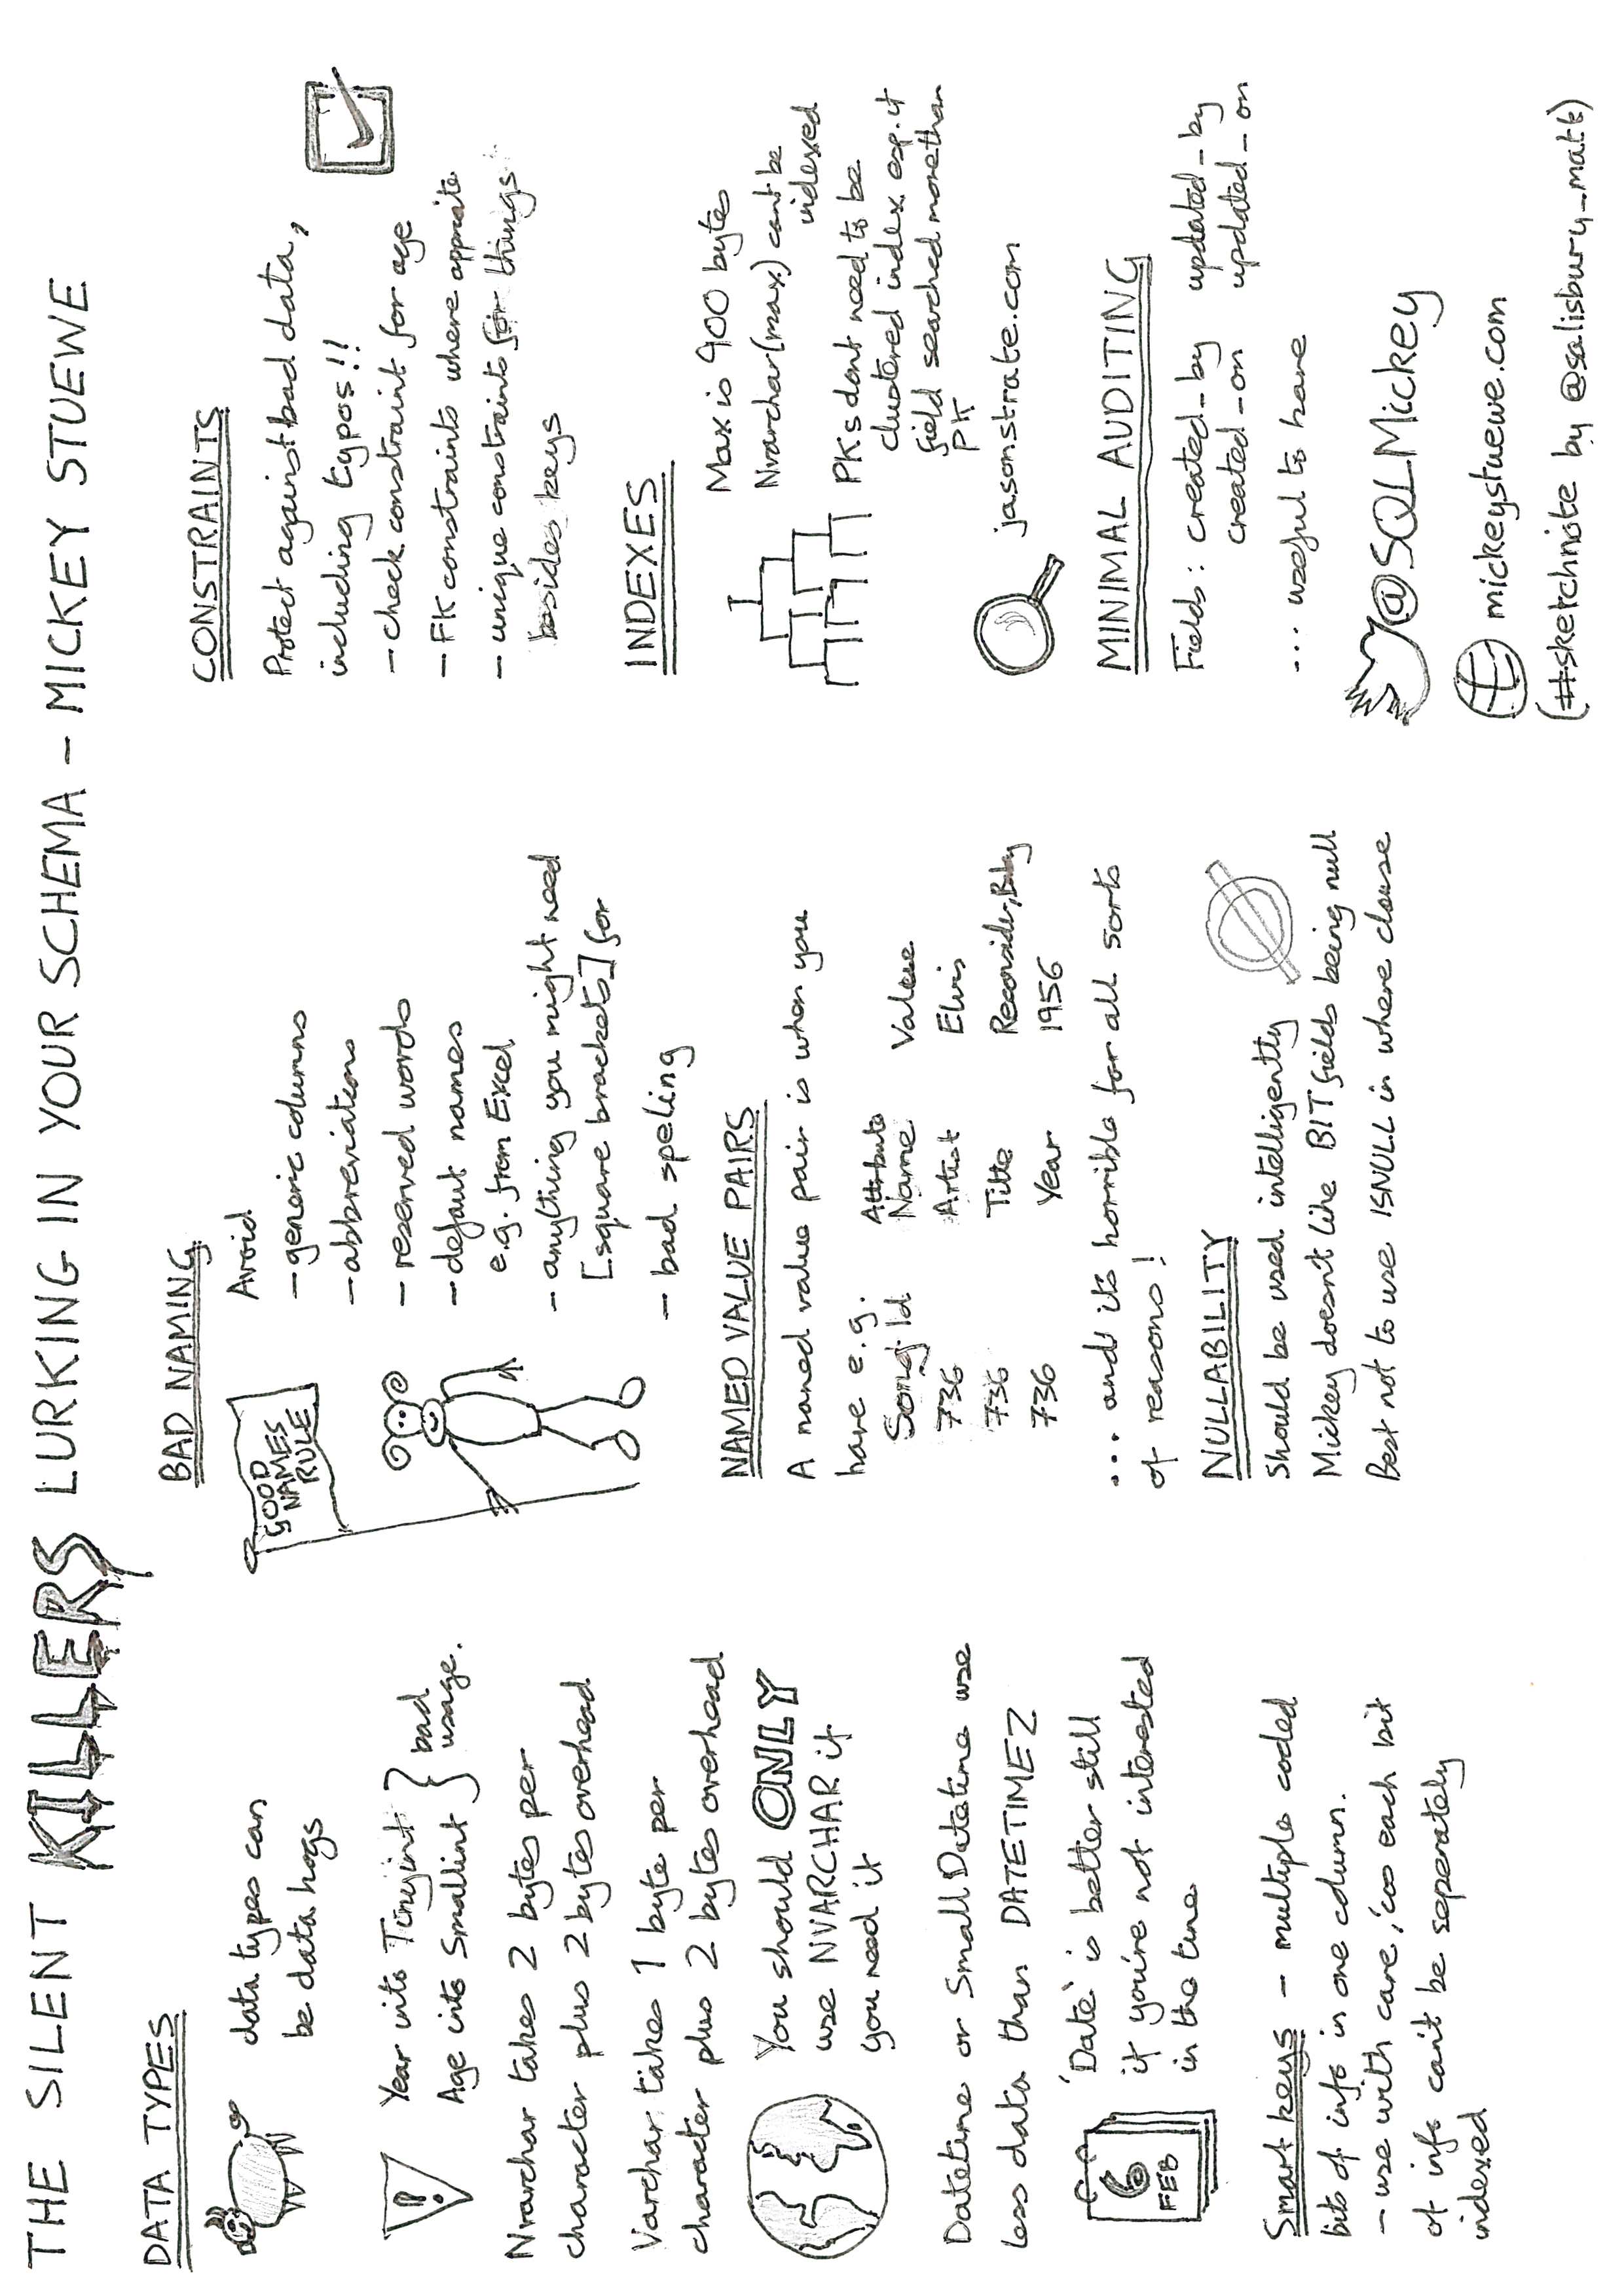 THE SILENT KILLERS LURKING IN YOUR SCHEMA - MICKEY STUEWE
DATA TYPES
data types can
be data hogs
!
Year into Tinyint } bad
Age into Smallint } usage.
Nvarchar takes 2 bytes per
character plus 2 bytes overhead
Varchar takes 1 byte per
character plus 2 bytes overhead
You should ONLY
use NVARCHAR if
you need it
Datetime or Small Datetime use
less data than DATETIME2
6
FEB
'Date' is better still
if you're not interested
in the time
Smart keys - multiple coded
bits of info in one column.
- use with care, 'cos each bit
of info can't be seperately
indexed
BAD NAMING
GOOD
NAMES
RULE
Avoid
- generic columns
- abbreviations
- reserved words
- default names
e.g. from Excel
- anything you might need
[square brackets] for
- bad speling
NAMED VALUE PAIRS
A named value pair is when you
have e.g.
Song Id Attribute Name Value
736 Artist Elvis
736 Title Reconsider, Baby
736 Year 1956
... and it's horrible for all sorts
of reasons!
NULLABILITY
Should be used intelligently
Mickey doesn't like BIT fields being null
Best not to use ISNULL in where clause
CONSTRAINTS
Protect against bad data,
including typos!!
- check constraint for age
- FK constraints where appraite
- unique constraints for things
besides keys
INDEXES
Max is 900 bytes
Nvarchar(max) can't be
indexed
PKs dont need to be
clustered index esp. if
field searched more than
PK
jasonstrate.com
MINIMAL AUDITING
Fields: created_by updated_by
created_on updated_on
... useful to have
@SQLMickey
mickeystuewe.com
(#sketchnote by @salisbury_matt)